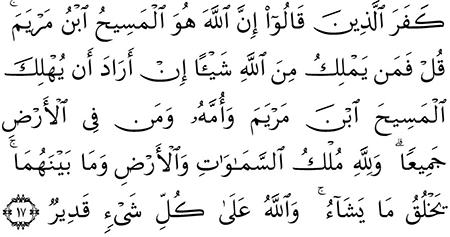 كَفَرَ ٱلَّذِينَ قَالُوٓا۟ إِنَّ ٱللَّهَ هُوَ ٱلْمَسِيحُ ٱبْنُ مَرْيَمَ ۚ
قُلْ فَمَن يَمْلِكُ مِنَ ٱللَّهِ شَيْـًٔا إِنْ أَرَادَ أَن يُهْلِكَ
ٱلْمَسِيحَ ٱبْنَ مَرْيَمَ وَأُمَّهُۥ وَمَن فِى ٱلْأَرْضِ
جَمِيعًا ۗ وَلِلَّهِ مُلْكُ ٱلسَّمَـٰوَٰتِ وَٱلْأَرْضِ وَمَا بَيْنَهُمَا ۚ
يَخْلُقُ مَا يَشَآءُ ۚ وَٱللَّهُ عَلَىٰ كُلِّ شَىْءٍ قَدِيرٌ ١٧